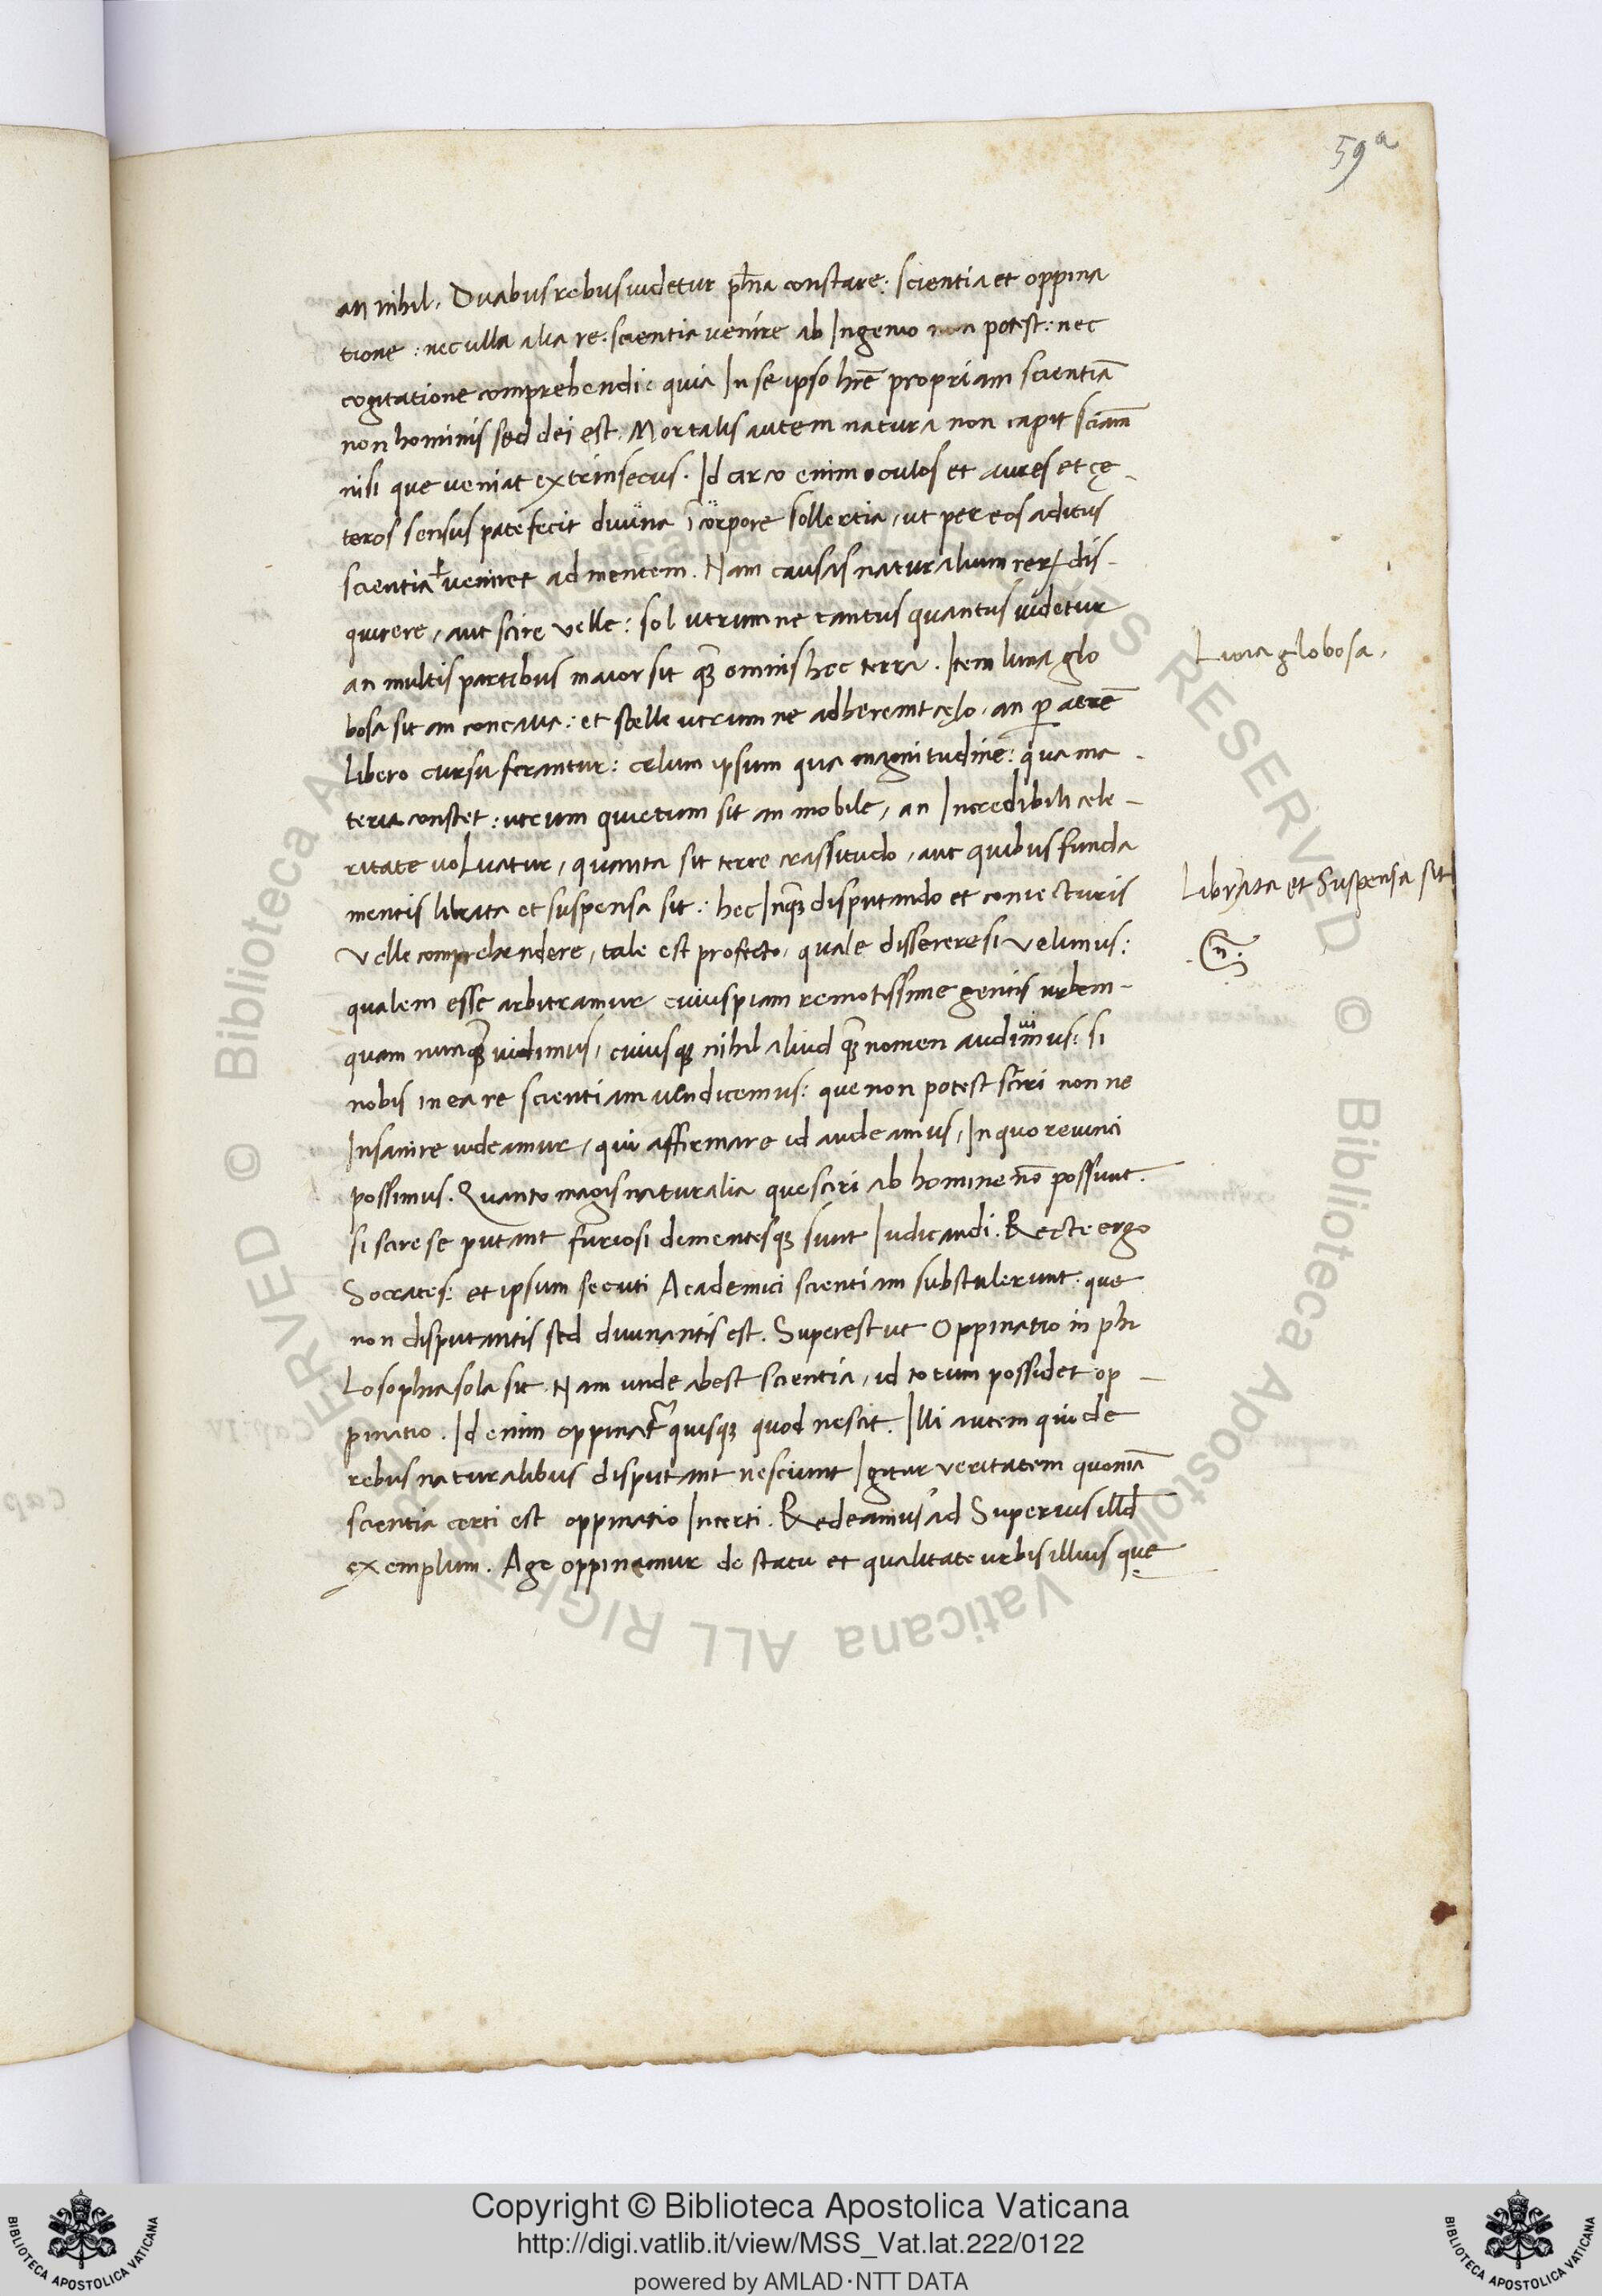 59a
an nihil. Duabus rebus uidetur ph̄ia constare: scientia et oppina
tione: nec ulla alia re. scientia venire ab Ingenio non potest: nec
cogitatione comprehendi: quia In se ipso hr̄e propriam scientiā
non hominis sed dei est. Mortalis autem natura non capit sciam̄
nisi que veniat extrinsecus. Id circo enim oculos et aures et cę-
teros sensus patefecit diuina ī corpore sollertia, ut per eos aditus
scientia veniret ad mentem. Nam causas naturalium rerꝝ dis-
quirere, aut scire velle: sol utrumne tantus quantus uidetur
an multis partibus maior sit qꝫ̄ omnis hec terra. Item luna glo
bosa sit an concaua: et stelle utrumne adhereant cęlo, an ꝑ aerē
libero cursu ferantur: celum ipsum qua magnitudine: qua ma-
teria constet: utrum quietum sit an mobile, an Incredibili cele-
ritate uoluatur, quanta sit terre crassitudo, aut quibus funda
mentis librata et suspensa sit: hec Inqꝫ̄ disputando et coniecturis
velle comprehendere, tale est profecto, quale disserere si velimus:
qualem esse arbitramur cuiuspiam remotissime gentis urbem-
quam nunqꝫ̄ uidimus, cuiusqꝫ nihil aliud qꝫ̄ nomen audiuimus: si
nobis in ea re scientiam uendicemus: que non potest sciri non ne
Insanire uideamur, qui affirmare id audeamus, In quo reuinci
possimus. Quanto magis naturalia que sciri ab homine nō possunt.
si scire se putant furiosi dementesqꝫ sunt Iudicandi. Recte ergo
Socrates: et ipsum secuti Academici scientiam substulerunt: que
non disputantis sed diuinantis est. Superest ut Oppinatio in phi
losophia sola sit. Nam unde abest scientia, id totum possidet op-
pinatio. Id enim oppinat᷑ quisqꝫ quod nescit. Illi autem qui de
rebus naturalibus disputant nesciunt Igitur veritatem quoniā
scientia certi est oppinatio Incerti. Redeamus ad Superius illd̄
exemplum. Age oppinemur de statu et qualitate urbis illius que
Luna globosa.
Librata et Suspensa sit
© Biblioteca Apostolica Vaticana ALL RIGHTS RESERVED
Copyright © Biblioteca Apostolica Vaticana
http://digi.vatlib.it/view/MSS_Vat.lat.222/0122
powered by AMLAD·NTT DATA
BIBLIOTECA APOSTOLICA VATICANA
BIBLIOTECA APOSTOLICA VATICANA